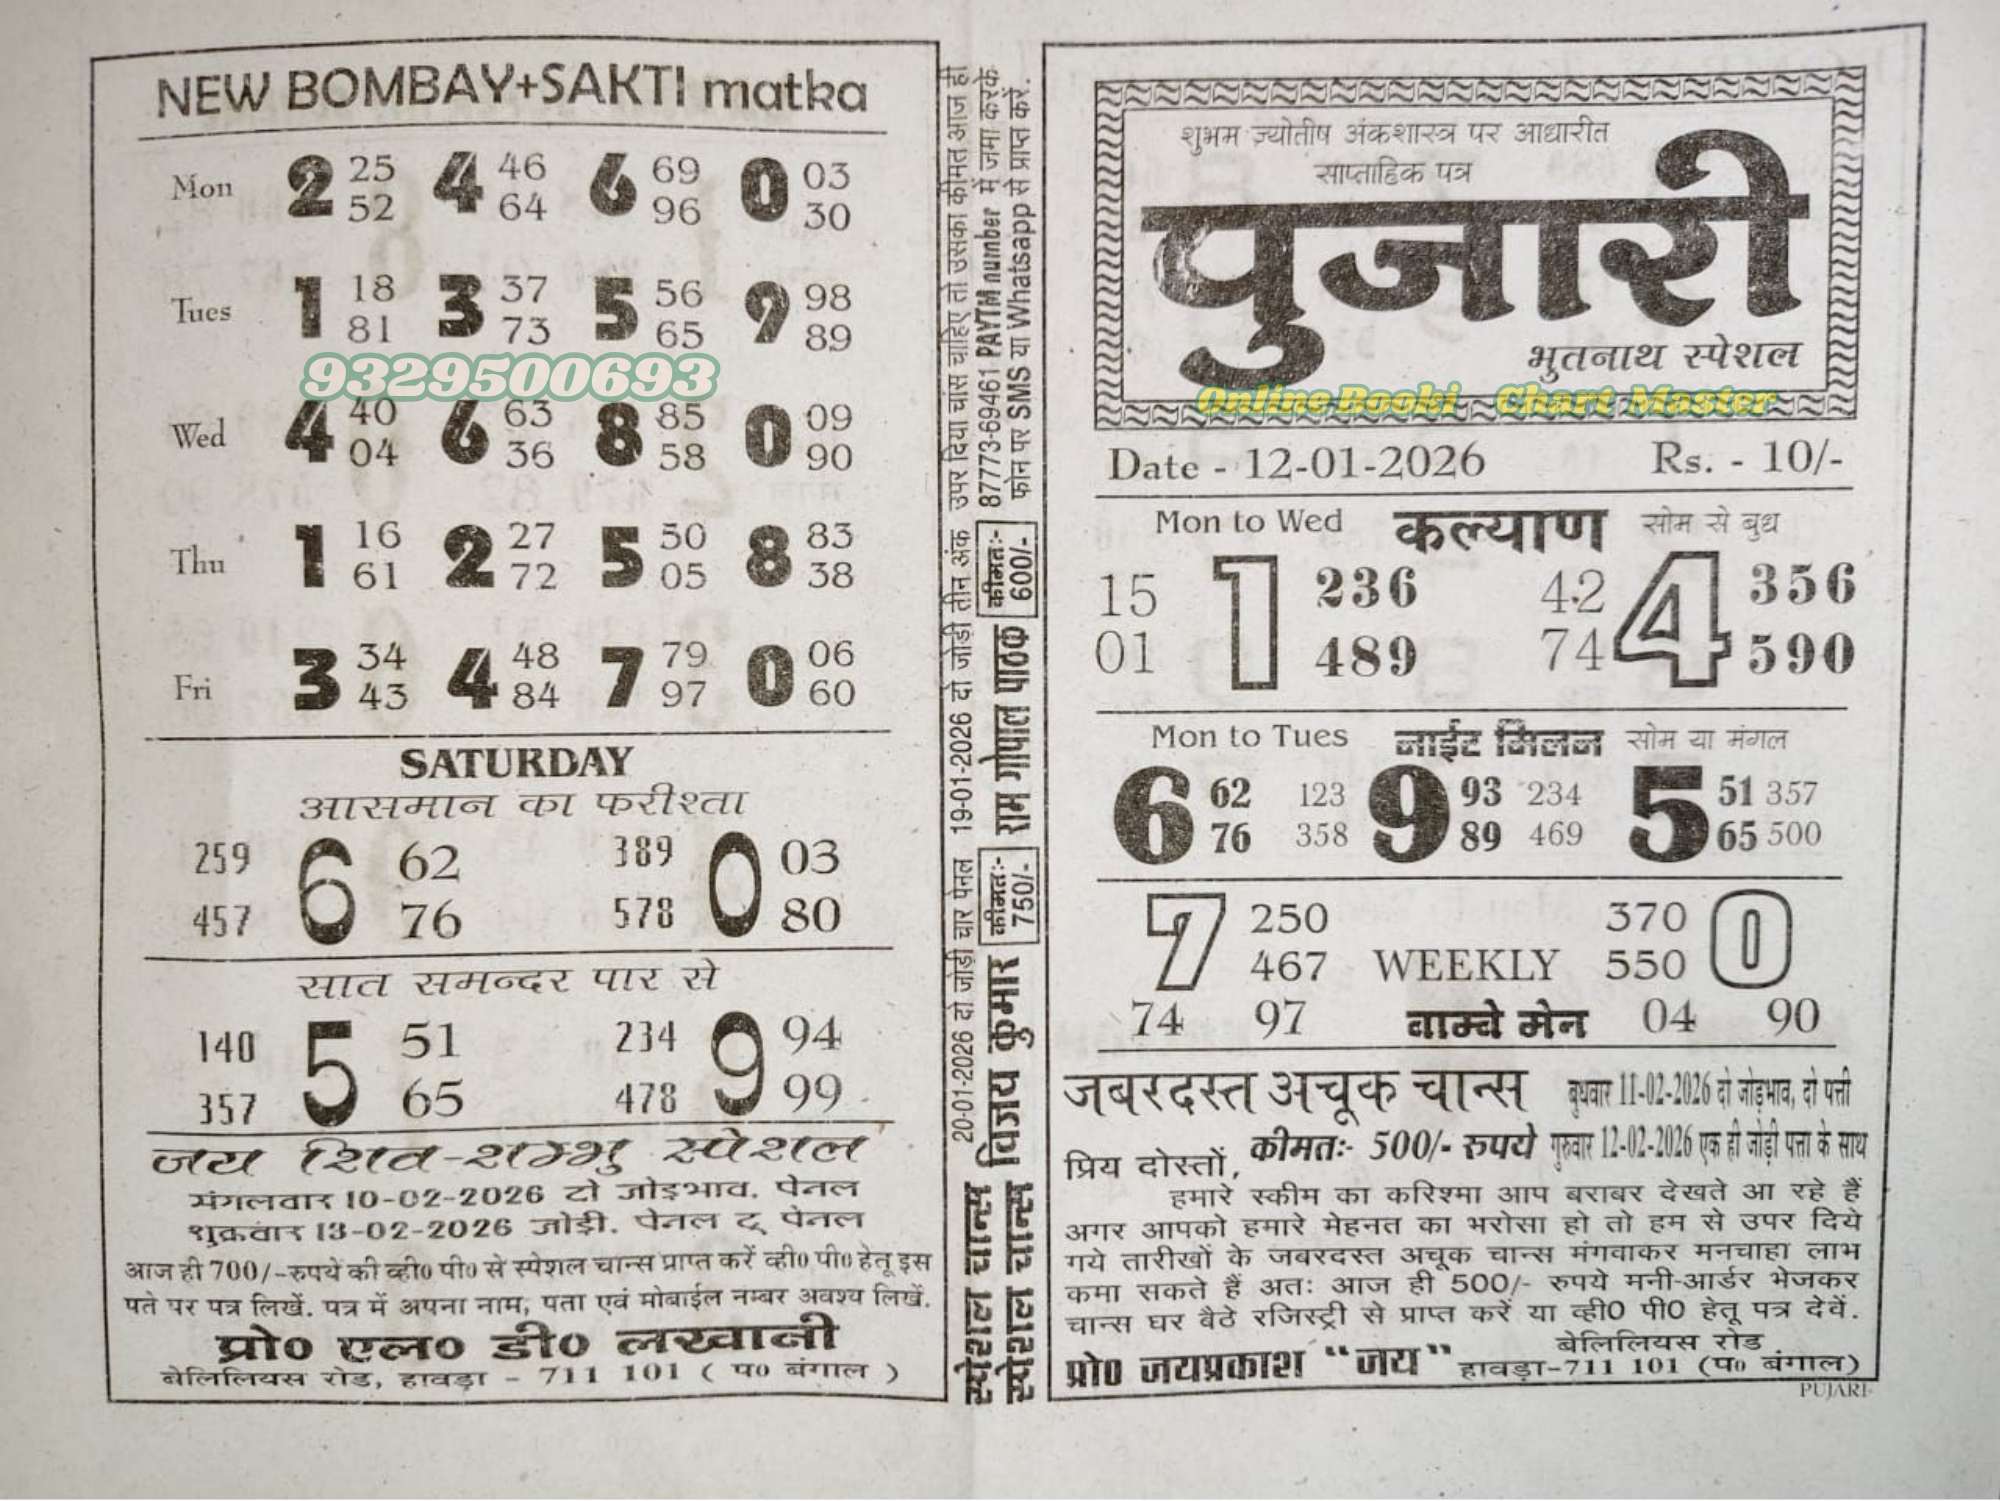 NEW BOMBAY+SAKTI matka
Mon 2 25 52 4 46 64 6 69 96 0 03 30
Tues 1 18 81 3 37 73 5 56 65 9 98 89
9329500693
Wed 4 40 04 6 63 36 8 85 58 0 09 90
Thu 1 16 61 2 27 72 5 50 05 8 83 38
Fri 3 34 43 4 48 84 7 79 97 0 06 60
SATURDAY
आसमान का फरीश्ता
259 457 6 62 76 389 578 0 03 80
सात समन्दर पार से
140 357 5 51 65 234 478 9 94 99
जय शिव-शम्भु स्पेशल
मंगलवार 10-02-2026 दो जोड़भाव. पेनल
शुक्रवार 13-02-2026 जोड़ी. पेनल टू पेनल
आज ही 700/-रुपये की व्ही० पी० से स्पेशल चान्स प्राप्त करें व्ही० पी० हेतू इस
पते पर पत्र लिखें. पत्र में अपना नाम, पता एवं मोबाईल नम्बर अवश्य लिखें.
प्रो० एल० डी० लखानी
बेलिलियस रोड, हावड़ा - 711 101 ( प० बंगाल )
20-01-2026 दो जोड़ी चार पेनल 19-01-2026 दो जोड़ी तीन अंक उपर दिया चांस चाहिए तो उसका कीमत आज ही
स्पेशल चान्स विजय कुमार कीमतः- 750/- राम गोपाल पाठक कीमतः- 600/- 87773-69461 PAYTM number में जमा करके
स्पेशल चान्स फोन पर SMS या Whatsapp से प्राप्त करें.
शुभम ज्योतीष अंकशास्त्र पर आधारीत
साप्ताहिक पत्र
पुजारी
भुतनाथ स्पेशल
Online Booki Chart Master
Date - 12-01-2026 Rs. - 10/-
Mon to Wed कल्याण सोम से बुध
15 01 1 236 489 42 74 4 356 590
Mon to Tues नाईट मिलन सोम या मंगल
6 62 76 123 358 9 93 89 234 469 5 51 65 357 500
7 250 467 WEEKLY 370 550 0
74 97 बाम्बे मेन 04 90
जबरदस्त अचूक चान्स बुधवार 11-02-2026 दो जोड़भाव, दो पत्ती
प्रिय दोस्तों, कीमतः- 500/- रुपये गुरुवार 12-02-2026 एक ही जोड़ी पत्ता के साथ
हमारे स्कीम का करिश्मा आप बराबर देखते आ रहे हैं
अगर आपको हमारे मेहनत का भरोसा हो तो हम से उपर दिये
गये तारीखों के जबरदस्त अचूक चान्स मंगवाकर मनचाहा लाभ
कमा सकते हैं अतः आज ही 500/- रुपये मनी-आर्डर भेजकर
चान्स घर बैठे रजिस्ट्री से प्राप्त करें या व्ही0 पी0 हेतू पत्र देवें.
प्रो० जयप्रकाश "जय" बेलिलियस रोड
हावड़ा-711 101 (प० बंगाल)
PUJARI-